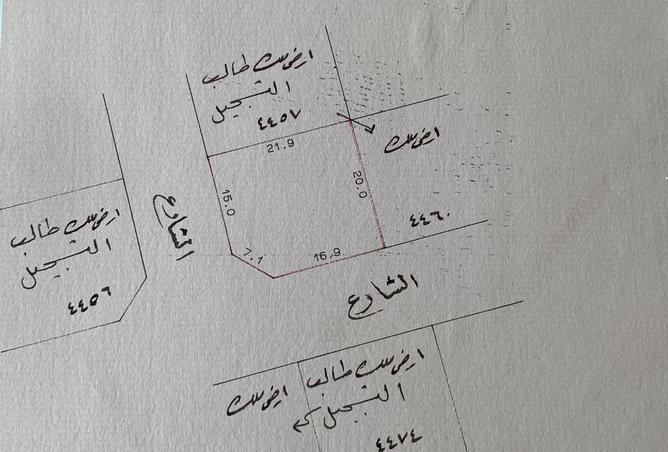 ارض ملك طالب
التسجيل
٤٤٥٧
21.9
ارض ملك
15.0
20.0
٤٤٦٠
الشارع
7.1
16.9
ارض ملك طالب
التسجيل
٤٤٥٦
الشارع
ارض ملك طالب
التسجيل
ارض ملك
٤٤٧٤